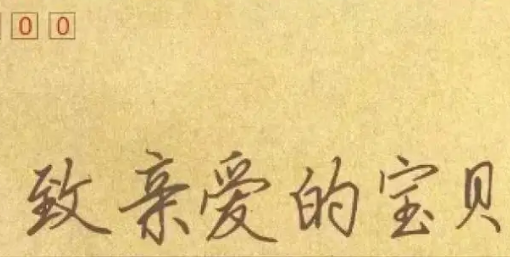 0 0
致亲爱的宝贝